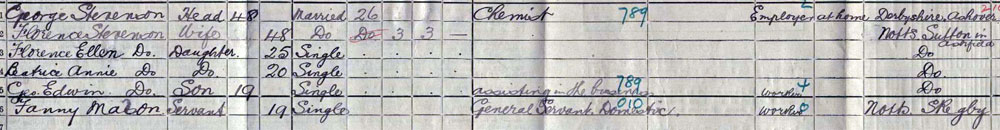 1 George Stevenson Head 48 Married 26 Chemist 789 Employer at home Derbyshire, Ashover
2 Florence Stevenson Wife 48 Do Do 3 3 — Notts. Sutton in Ashfield
3 Florence Ellen Do. Daughter 25 Single Do
4 Beatrice Annie Do Do. 20 Single Do.
5 Geo. Edwin. Do. Son 19 Single assisting in the business 789 Worker 4 Do
6 Fanny Mason Servant 19 Single General Servant. Domestic. 010 Worker 0 Notts. Skegby
7